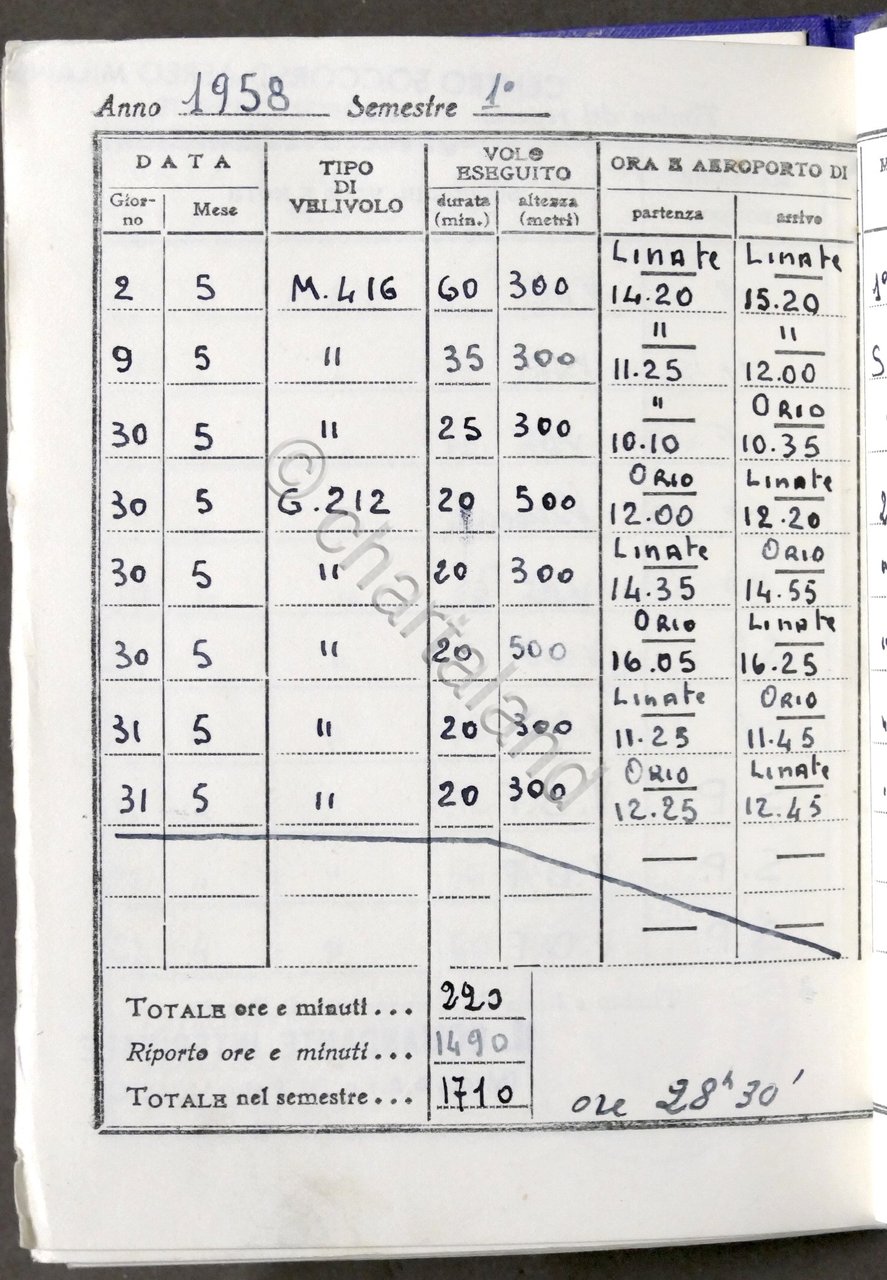 Anno 1958 Semestre 1º
DATA
TIPO DI VELIVOLO
VOLO ESEGUITO
ORA E AEROPORTO DI
Gior-no
Mese
durata (min.)
altezza (metri)
partenza
arrivo
Linate Linate
2 5 M.416 60 300 14.20 15.20
" "
9 5 " 35 300 11.25 12.00
" Orio
30 5 " 25 300 10.10 10.35
Orio Linate
30 5 G.212 20 500 12.00 12.20
Linate Orio
30 5 " 20 300 14.35 14.55
Orio Linate
30 5 " 20 500 16.05 16.25
Linate Orio
31 5 " 20 300 11.25 11.45
Orio Linate
31 5 " 20 300 12.25 12.45
— —
— —
TOTALE ore e minuti... 220
Riporto ore e minuti... 1490
TOTALE nel semestre... 1710
ore 28h 30'
© chartaland